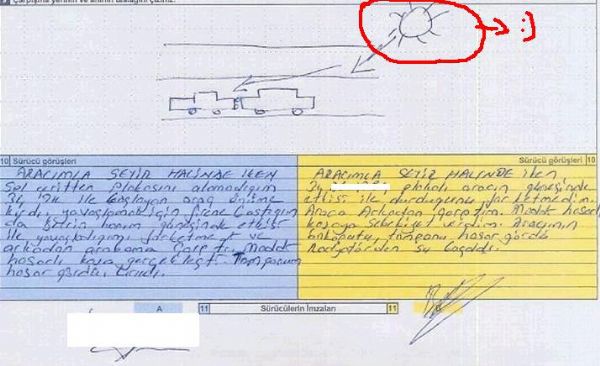 Çarpışma yerinin ve anının taslağını çiziniz.
:)
10 Sürücü görüşleri
ARACIMLA SEYİR HALİNDE İKEN
Sol şeritten Plakasını alamadığım
34 ile başlayan araç önüme
kırdı, yavaşlamak için firene bastığım
da hanım güneşinde etkisi
ile yavaşladığımı farketmedi ve
arkadan arabama Çarptı, Maddi
hasarlı kaza gerçekleşti. Tamponum
hasar gördü, kırıldı.
Sürücü görüşleri 10
ARACIMLA SEYİR HALİNDE iken
34 plakalı aracın güneşinde
etkisi ile durduğunu farketmedim.
Araca Arkadan çarptım. Maddi hasarlı
kazaya Sebebiyet verdim. Aracımın
önkaputu, tamponu hasar gördü
Radyatörden su boşaldı.
A 11 Sürücülerin İmzaları 11 B